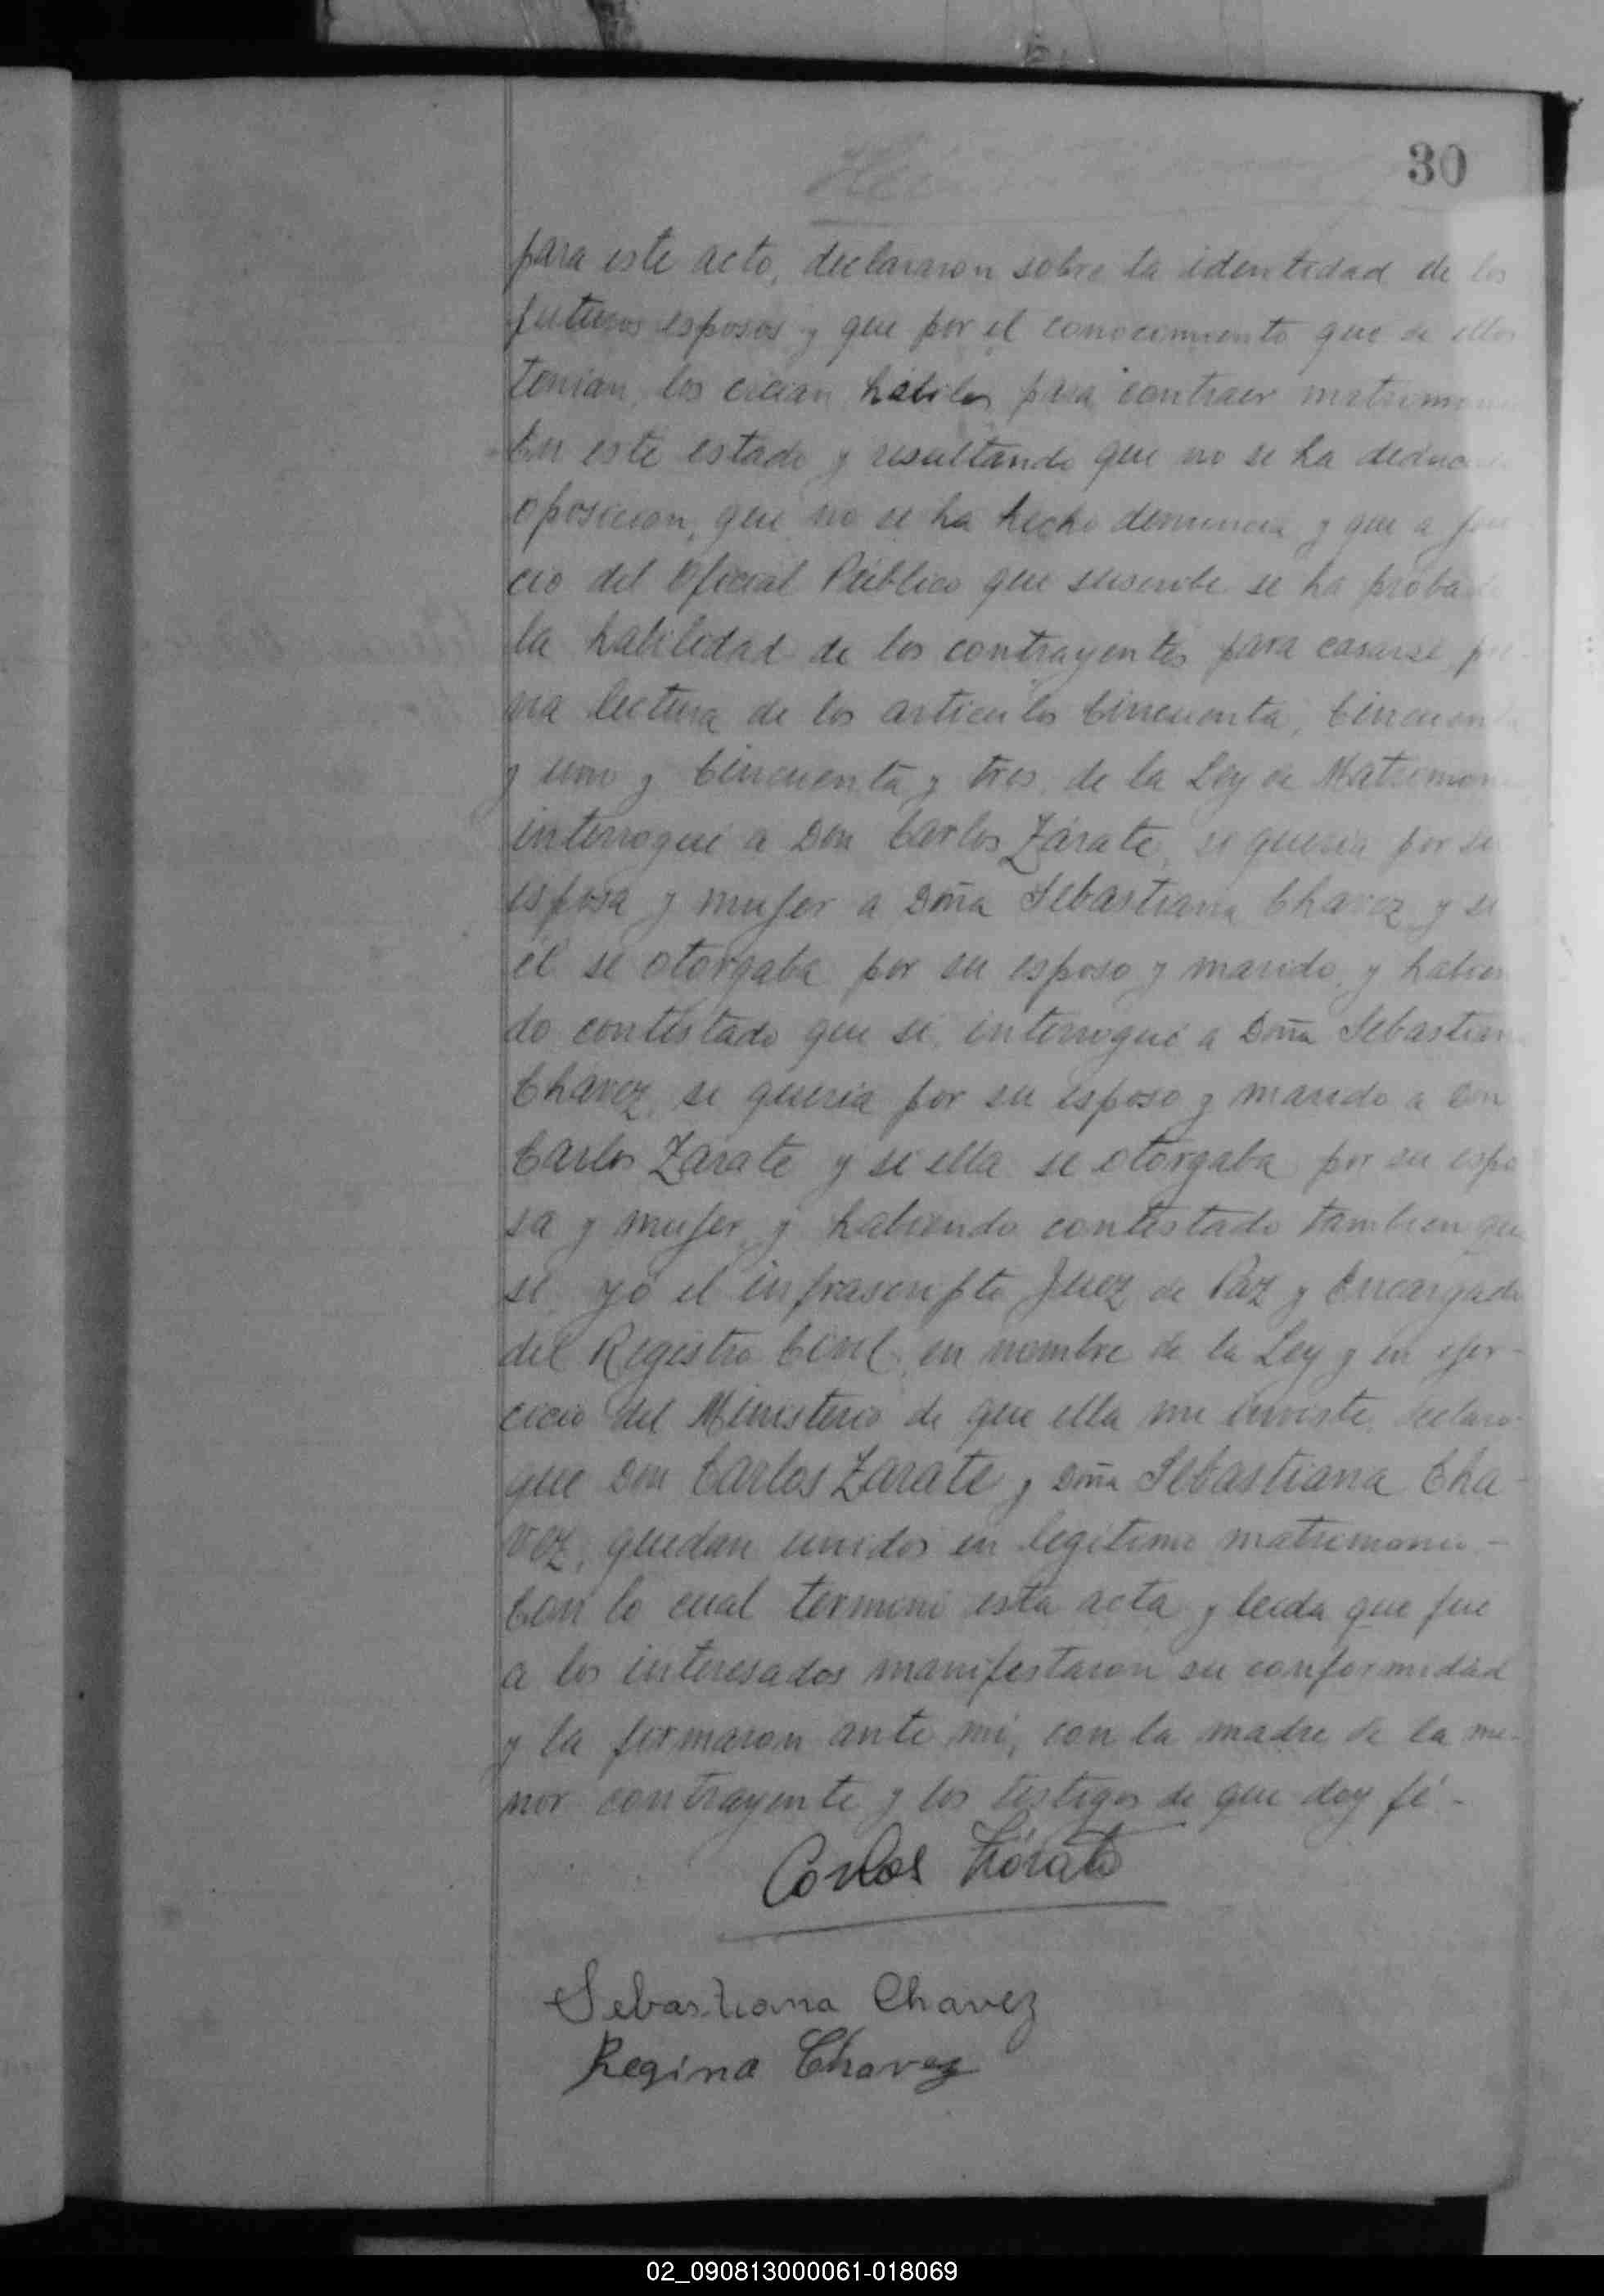 30
para este acto, declararon sobre la identidad de los
futuros esposos y que por el conocimiento que de ellos
tenian, los creian hábiles para contraer matrimonio
En este estado y resultando que no se ha deduci
oposicion, que no se ha hecho denuncia y que a jui
cio del Oficial Público que suscribe se ha probado
la habilidad de los contrayentes para casarse, pre-
via lectura de los articulos Cincuenta, Cincuenta
y uno y Cincuenta y tres de la Ley de Matrimonio
interrogué a Don Carlos Zárate, si queria por su
esposa y mujer a Doña Sebastiana Chavez y si
él se otorgaba por su esposo y marido, y habien
do contestado que si, interrogué a Doña Sebastiana
Chavez, si queria por su esposo y marido a Don
Carlos Zarate y si ella se otorgaba por su espo
sa y mujer, y habiendo contestado tambien que
si, yo el infrascripto Juez de Paz y Encargado
del Registro Civil, en nombre de la Ley y en ejer-
cicio del Ministerio de que ella me inviste, declaro
que Don Carlos Zarate y Doña Sebastiana Cha-
vez, quedan unidos en legitimo matrimonio.-
Con lo cual terminó esta acta y leida que fue
a los interesados manifestaron su conformidad
y la firmaron ante mi, con la madre de la me-
nor contrayente y los testigos de que doy fé-
Carlos Zárate
Sebastiana Chavez
Regina Chavez
02_090813000061-018069